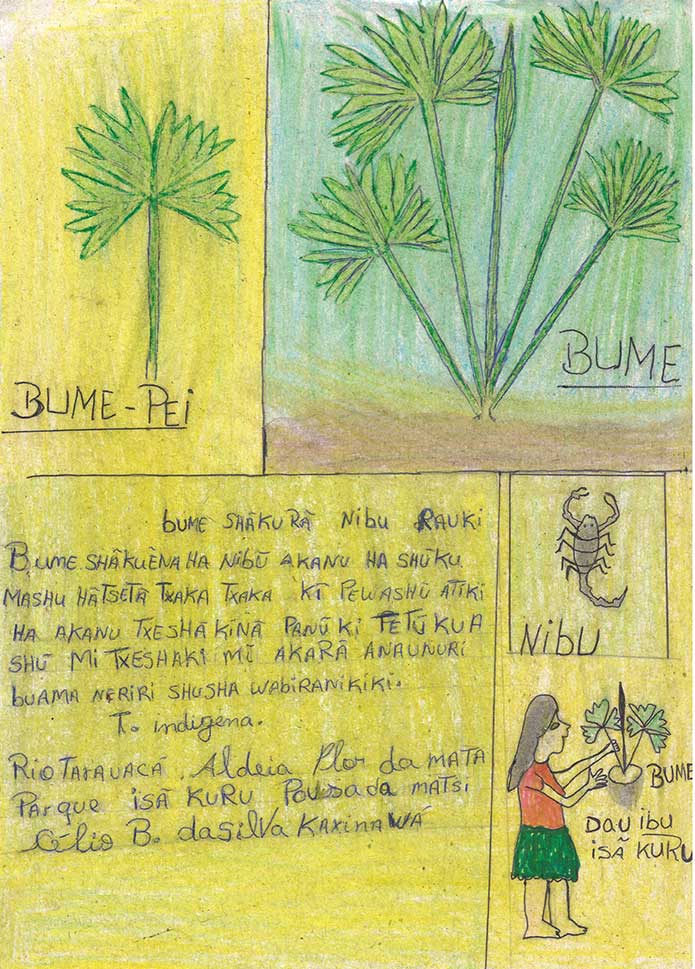 BUME-PEI
BUME
BUME SHÃKU RÃ NIBU RAUKI
BUME SHÃKUÈNA HA NIBŨ AKANU HA SHŨKU
MASHU HÃTSETÃ TXAKA TXAKA KĨ PEWASHŨ ATIKI
HA AKANU TXESHAKÍNÃ PANŨ KI TETŨ KUA
SHŨ MI TXESHAKI MĨ AKARÃ ANAUNURI
BUAMA NERIRI SHUSHA WABIRANIKIKI.
T. indigena.
RIO TARAUACÁ, Aldeia Flor da MATA
Parque ISÃ KURU Pousada MATSI
Célio B. da Silva KAXINAWÁ
NIBU
BUME
DAU IBU
ISÃ KURU